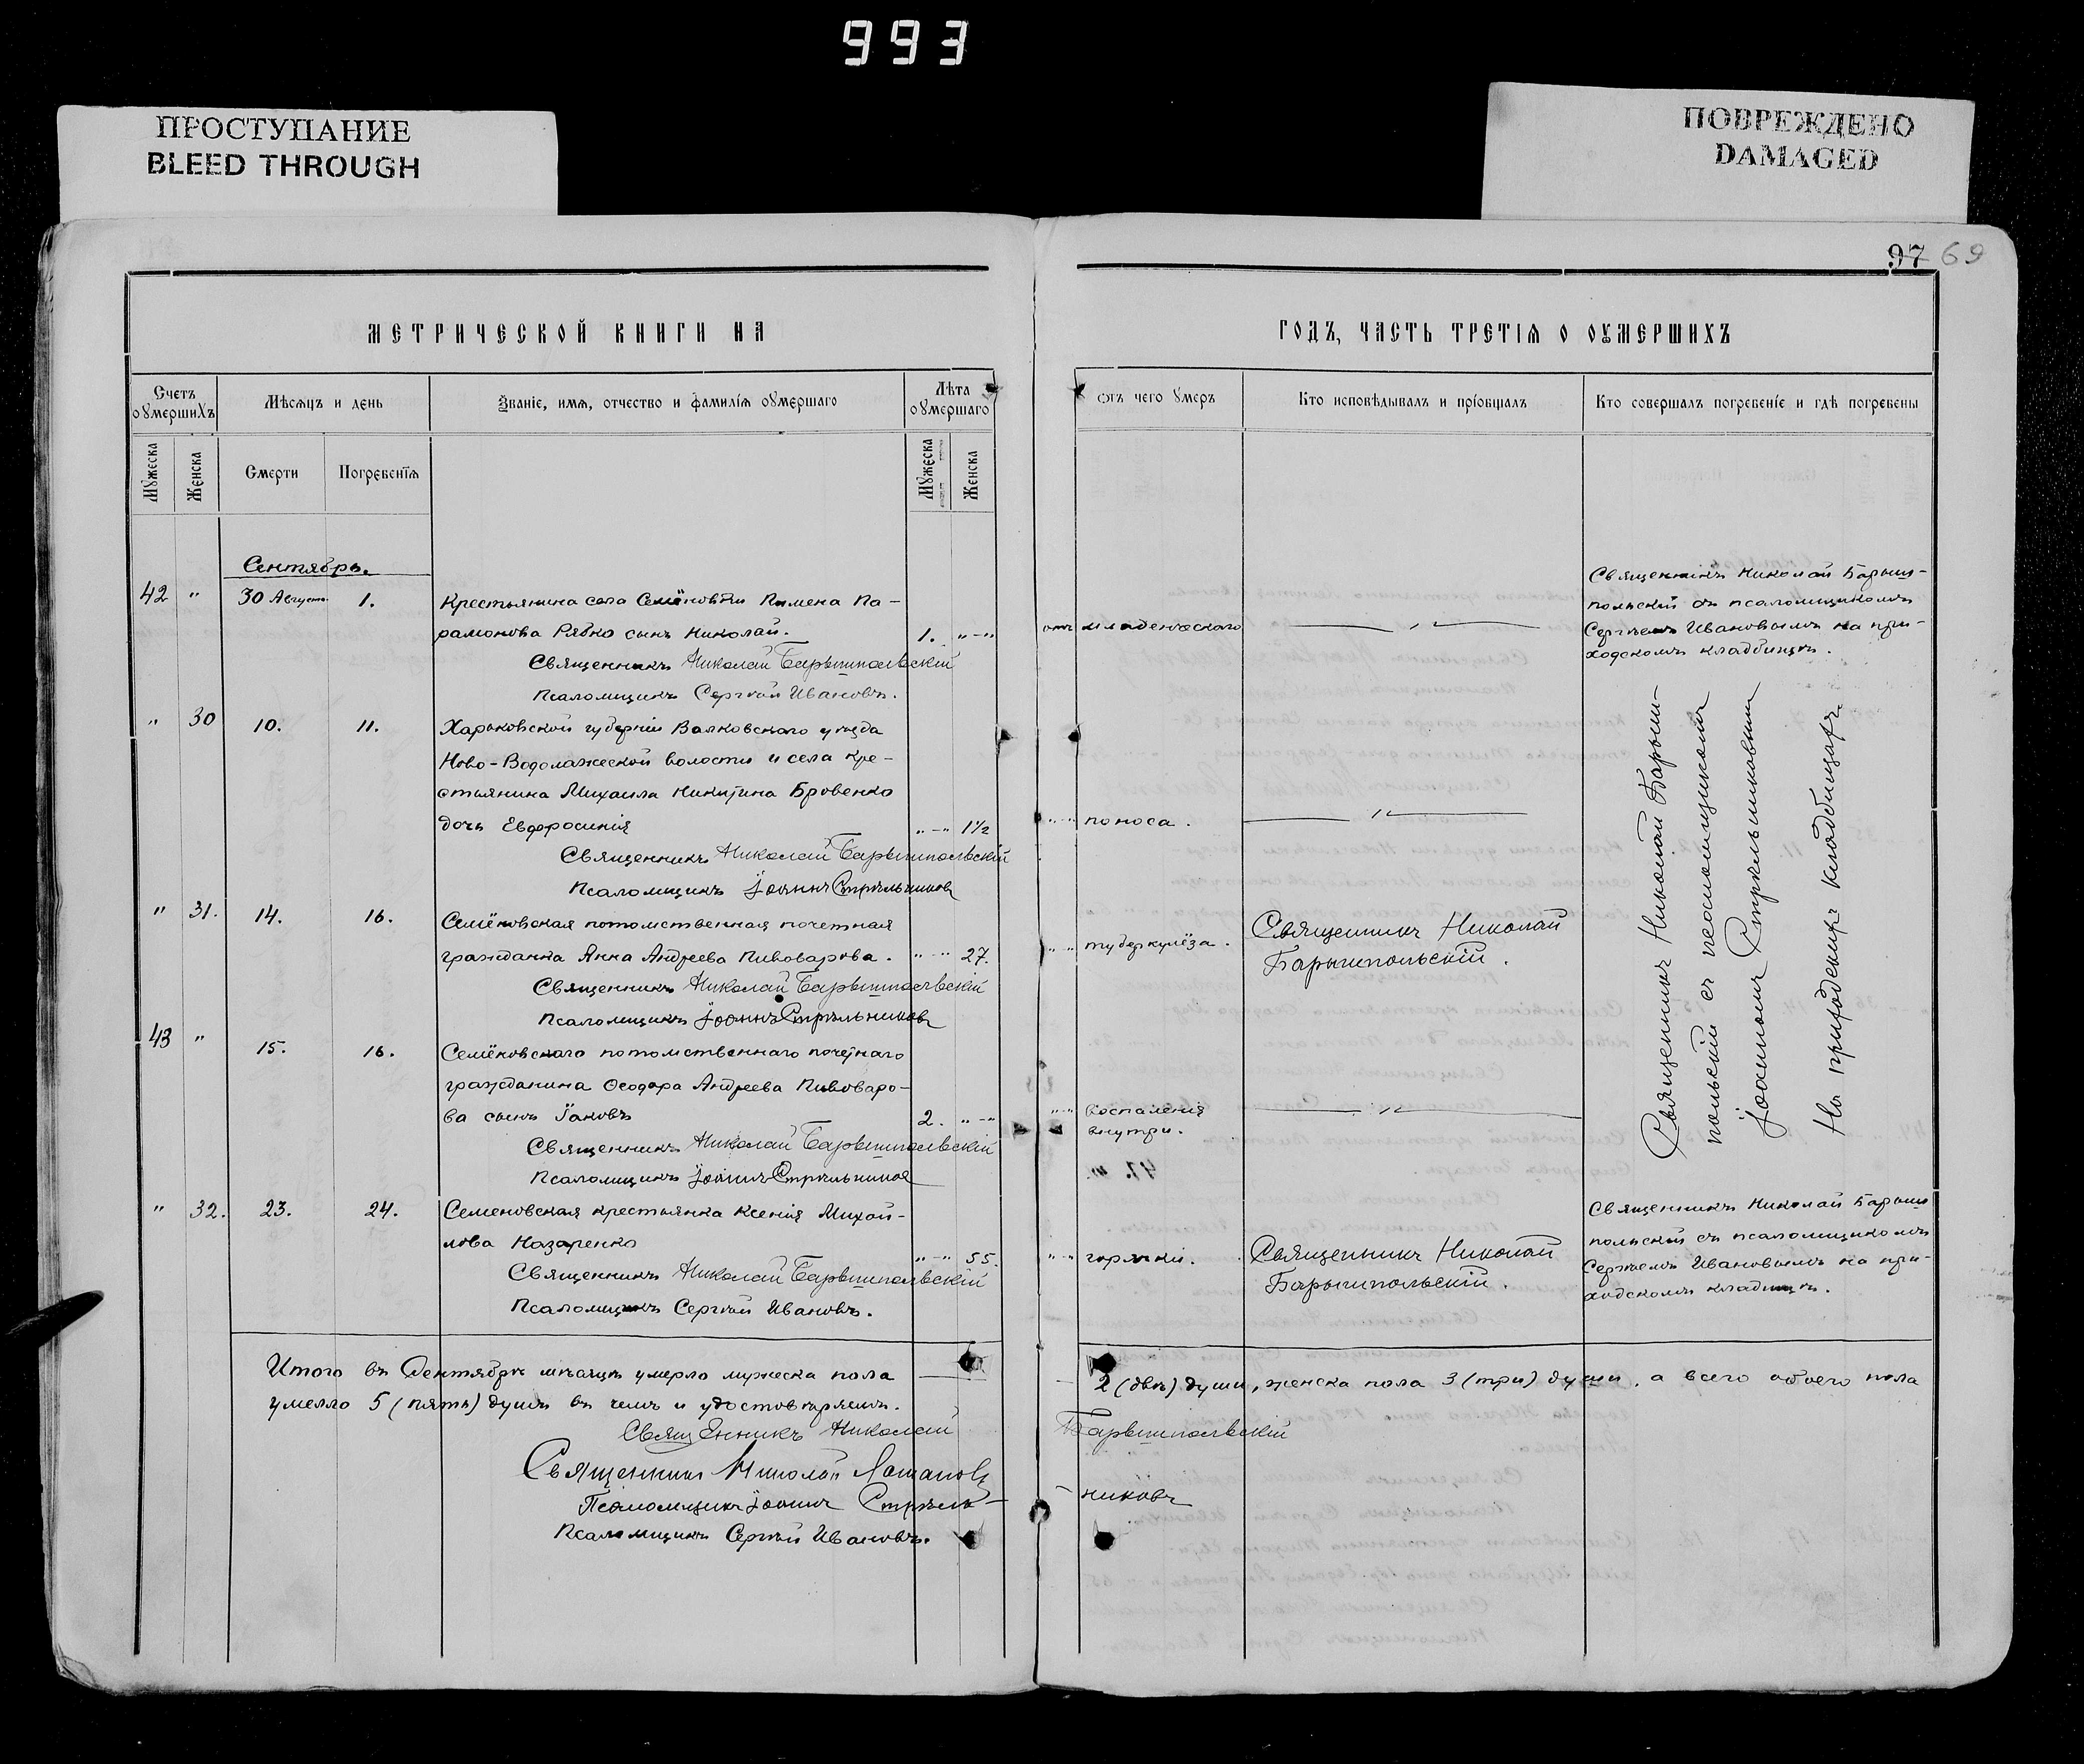 993
ПРОСТУПАНИЕ
BLEED THROUGH
ПОВРЕЖДЕНО
DAMAGED
97 69
МЕТРИЧЕСКОЙ КНИГИ НА
ГОДЪ, ЧАСТЬ ТРЕТІЯ О ОУМЕРШИХЪ
Счетъ оумершихъ
Мѣсяцъ и день
Званіе, имя, отчество и фамилія оумершаго
Лѣта оумершаго
Отъ чего умеръ
Кто исповѣдывалъ и пріобщалъ
Кто совершалъ погребеніе и гдѣ погребены
Мужеска
Женска
Смерти
Погребенія
Мужеска
Женска
Сентябрь.
42 " 30 Августа. 1.
Крестьянина села Семёновки Пимена Па-
рамонова Рябко сынъ Николай. 1. "-"
Священникъ Николай Барышпольскій
Псаломщикъ Сергѣй Ивановъ.
отъ младенческаго
Священникъ Николай Барыш-
польскій съ псаломщикомъ
Сергѣемъ Ивановымъ на при-
ходскомъ кладбищѣ.
" 30 10. 11.
Харьковской губерніи Валковскаго уѣзда
Ново-Водолажеской волости и села кре-
стьянина Михаила Никитина Бровенко
дочь Евфросинія "-" 1½
Священникъ Николай Барышпольскій
Псаломщикъ Іоаннъ Стрѣльниковъ
"-" поноса.
" 31. 14. 16.
Семёновская потомственная почетная
гражданка Анна Андреева Пивоварова. "-" 27.
Священникъ Николай Барышпольскій
Псаломщикъ Іоаннъ Стрѣльниковъ
"-" туберкулёза.
Священникъ Николай
Барышпольскій.
43 " 15. 16.
Семёновскаго потомственнаго почетнаго
гражданина Ѳеодора Андреева Пивоваро-
ва сынъ Іаковъ 2. "-"
Священникъ Николай Барышпольскій
Псаломщикъ Іоаннъ Стрѣльниковъ
"-" воспаленія
внутри.
Священникъ Николай Барыш-
польскій съ псаломщикомъ
Іоанномъ Стрѣльниковымъ
На приходскомъ кладбищѣ
" 32. 23. 24.
Семеновская крестьянка Ксенія Михай-
лова Назаренко "-" 55.
Священникъ Николай Барышпольскій
Псаломщикъ Сергѣй Ивановъ.
"-" горячки.
Священникъ Николай
Барышпольскій.
Священникъ Николай Барыш
польскій съ псаломщикомъ
Сергѣемъ Ивановымъ на при-
ходскомъ кладищѣ.
Итого въ Сентябрѣ мѣсяцѣ умерло мужеска пола 2 (двѣ) души, женска пола 3 (три) души, а всего обоего пола
умелло 5 (пять) душъ въ чемъ и удостовѣряемъ.
Священникъ Николай Барышпольскій
Священникъ Николай
Псаломщикъ Іоаннъ Стрѣль-
никовъ
Псаломщикъ Сергѣй Ивановъ.